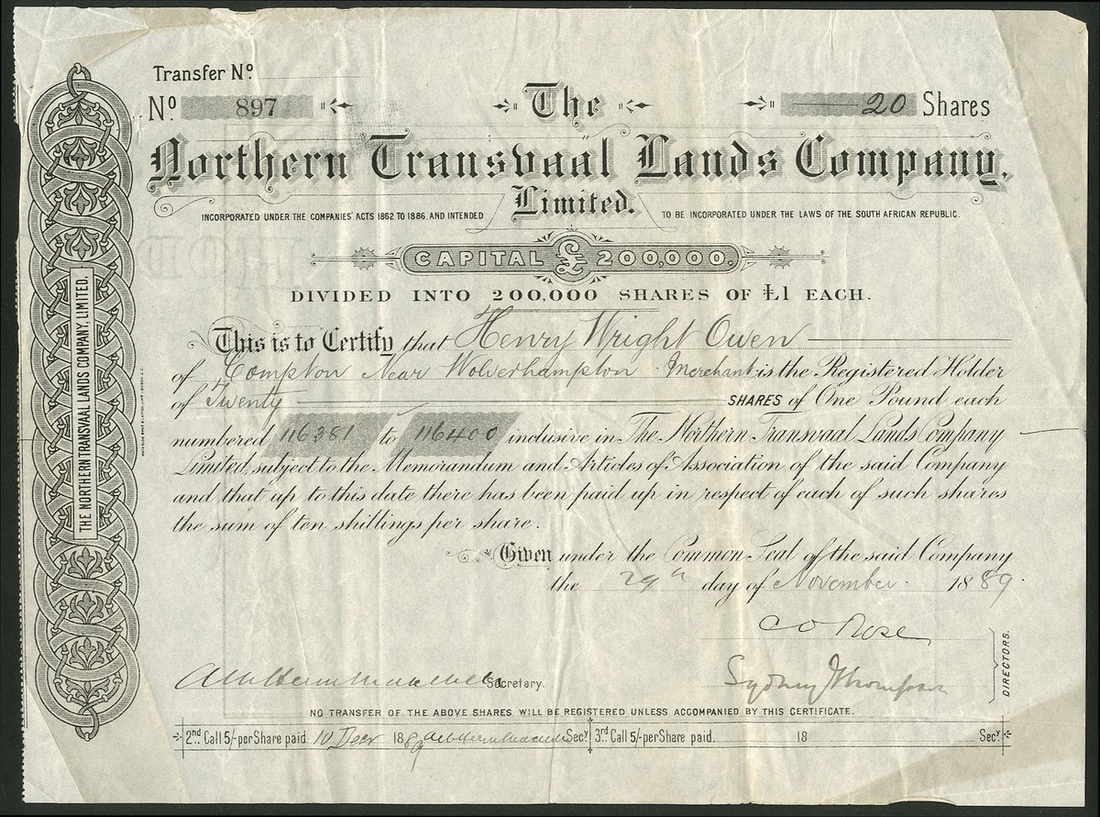 Transfer Nº
Nº 897
20 Shares
The
Northern Transvaal Lands Company,
Limited.
INCORPORATED UNDER THE COMPANIES' ACTS 1862 TO 1886, AND INTENDED
TO BE INCORPORATED UNDER THE LAWS OF THE SOUTH AFRICAN REPUBLIC.
CAPITAL £ 200,000.
DIVIDED INTO 200,000 SHARES OF £1 EACH.
This is to Certify that Henry Wright Owen
of Compton Near Wolverhampton Merchant is the Registered Holder
of Twenty SHARES of One Pound each
numbered 116381 to 116400 inclusive in The Northern Transvaal Lands Company
Limited, subject to the Memorandum and Articles of Association of the said Company
and that up to this date there has been paid up in respect of each of such shares
the sum of ten shillings per share.
Given under the Common Seal of the said Company
the 29th day of November 1889.
C D Rose
Sydney J Thompson
DIRECTORS.
Secretary.
NO TRANSFER OF THE ABOVE SHARES WILL BE REGISTERED UNLESS ACCOMPANIED BY THIS CERTIFICATE.
2nd Call 5/- per Share paid 10 Decr 1889 Secy
3rd Call 5/- per Share paid. 18 Secy
THE NORTHERN TRANSVAAL LANDS COMPANY, LIMITED.